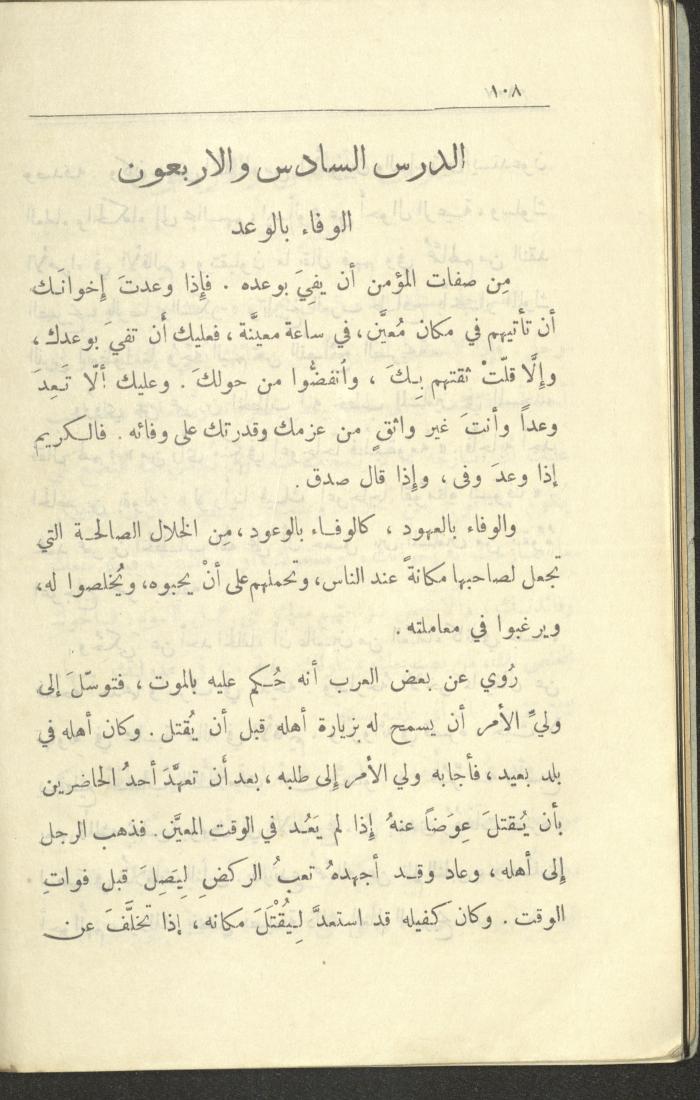 ١٠٨
الدرس السادس والاربعون
الوفاء بالوعد
مِن صفات المؤمن أن يفيَ بوعده . فإِذا وعدتَ إِخوانَك
أن تأتيهم في مكان مُعيَّن، في ساعة معيَّنة، فعليك أَن تفيَ بوعدك،
وإِلَّا قلّتْ ثقتهم بِكَ ، وأنفضُّوا من حولكَ . وعليك ألّا تَعِدَ
وعداً وأنتَ غير واثقٍ من عزمك وقدرتك على وفائه . فالكريم
إِذا وعدَ وفى ، وإِذا قال صدق .
والوفاء بالعهود ، كالوفاء بالوعود ، مِن الخلال الصالحة التي
تجعل لصاحبها مكانةً عند الناس، وتحملهم على أنْ يحبوه، ويُخلصوا له،
ويرغبوا في معاملته .
رُوي عن بعض العرب أنه حُكم عليه بالموت ، فتوسّلَ إلى
وليِّ الأمر أن يسمح له بزيارة أهله قبل أن يُقتل . وكان أهله في
بلد بعيد ، فأجابه ولي الأمر إِلى طلبه ، بعد أَن تعهَّدَ أحدُ الحاضرين
بأن يُقتلَ عِوَضاً عنهُ إِذا لم يَعُد في الوقت المعيَّن . فذهب الرجل
إِلى أهله ، وعاد وقد أجهدهُ تعبُ الركضِ لِيَصِلَ قبل فواتِ
الوقت . وكان كفيله قد استعدَّ لِيُقْتَلَ مكانه ، إِذا تخلَّفَ عن